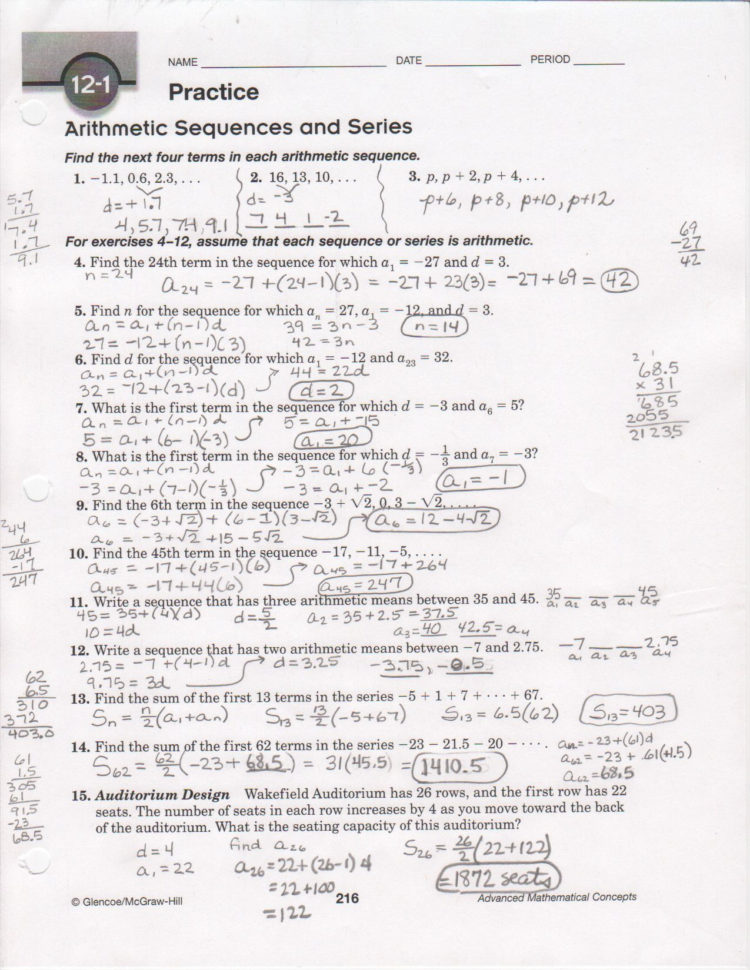 NAME DATE PERIOD
12-1
Practice
Arithmetic Sequences and Series
Find the next four terms in each arithmetic sequence.
1. −1.1, 0.6, 2.3, . . . 2. 16, 13, 10, . . . 3. p, p + 2, p + 4, . . .
d=+1.7 d= -3 p+6, p+8, p+10, p+12
4, 5.7, 7.4, 9.1 7 4 1 -2
5.7
1.7
7.4
1.7
9.1
For exercises 4–12, assume that each sequence or series is arithmetic.
69
-27
42
4. Find the 24th term in the sequence for which a₁ = −27 and d = 3.
n=24 a₂₄ = -27 +(24-1)(3) = -27 + 23(3)= -27+69 = 42
5. Find n for the sequence for which aₙ = 27, a₁ = −12, and d = 3.
an = a₁+(n-1)d 39 = 3n-3 n=14
27= -12+(n-1)(3) 42 = 3n
6. Find d for the sequence for which a₁ = −12 and a₂₃ = 32.
an = a₁+(n-1)d 44 = 22d
32 = -12+(23-1)(d) d=2
68.5
x 31
685
2055
21235
7. What is the first term in the sequence for which d = −3 and a₆ = 5?
an = a₁+(n-1)d 5 = a₁+-15
5 = a₁+(6-1)(-3) a₁=20
8. What is the first term in the sequence for which d = −1/3 and a₇ = −3?
an=a₁+(n-1)d -3=a₁+6(-1/3) a₁=-1
-3=a₁+(7-1)(-1/3) -3=a₁+-2
9. Find the 6th term in the sequence −3 + √2, 0, 3 − √2, . . . .
a₆ = (-3+√2)+(6-1)(3-√2) a₆=12-4√2
a₆ = -3+√2 +15-5√2
244
6
264
-17
247
10. Find the 45th term in the sequence −17, −11, −5, . . . .
a₄₅ = -17+(45-1)(6) a₄₅ = -17+264
a₄₅ = -17+44(6) a₄₅=247
11. Write a sequence that has three arithmetic means between 35 and 45. 35 45
a₁ a₂ a₃ a₄ a₅
45=35+(4)(d) d=5/2 a₂=35+2.5=37.5
10=4d a₃=40 42.5=a₄
12. Write a sequence that has two arithmetic means between −7 and 2.75. -7 2.75
a₁ a₂ a₃ a₄
2.75= -7+(4-1)d d=3.25 -3.75, -0.5
9.75=3d
62
6.5
310
372
403.0
13. Find the sum of the first 13 terms in the series −5 + 1 + 7 + · · · + 67.
Sn=n/2(a₁+an) S₁₃=13/2(-5+67) S₁₃=6.5(62) S₁₃=403
14. Find the sum of the first 62 terms in the series −23 − 21.5 − 20 − · · · .
an=-23+(61)d
a₆₂=-23+.61(+1.5)
a₆₂=68.5
S₆₂=62/2(-23+68.5)=31(45.5)=1410.5
61
1.5
305
61
91.5
-23
68.5
15. Auditorium Design Wakefield Auditorium has 26 rows, and the first row has 22
seats. The number of seats in each row increases by 4 as you move toward the back
of the auditorium. What is the seating capacity of this auditorium?
d=4 find a₂₆ S₂₆=26/2(22+122)
a₁=22 a₂₆=22+(26-1)4 =1872 seats
=22+100
=122
© Glencoe/McGraw-Hill 216 Advanced Mathematical Concepts